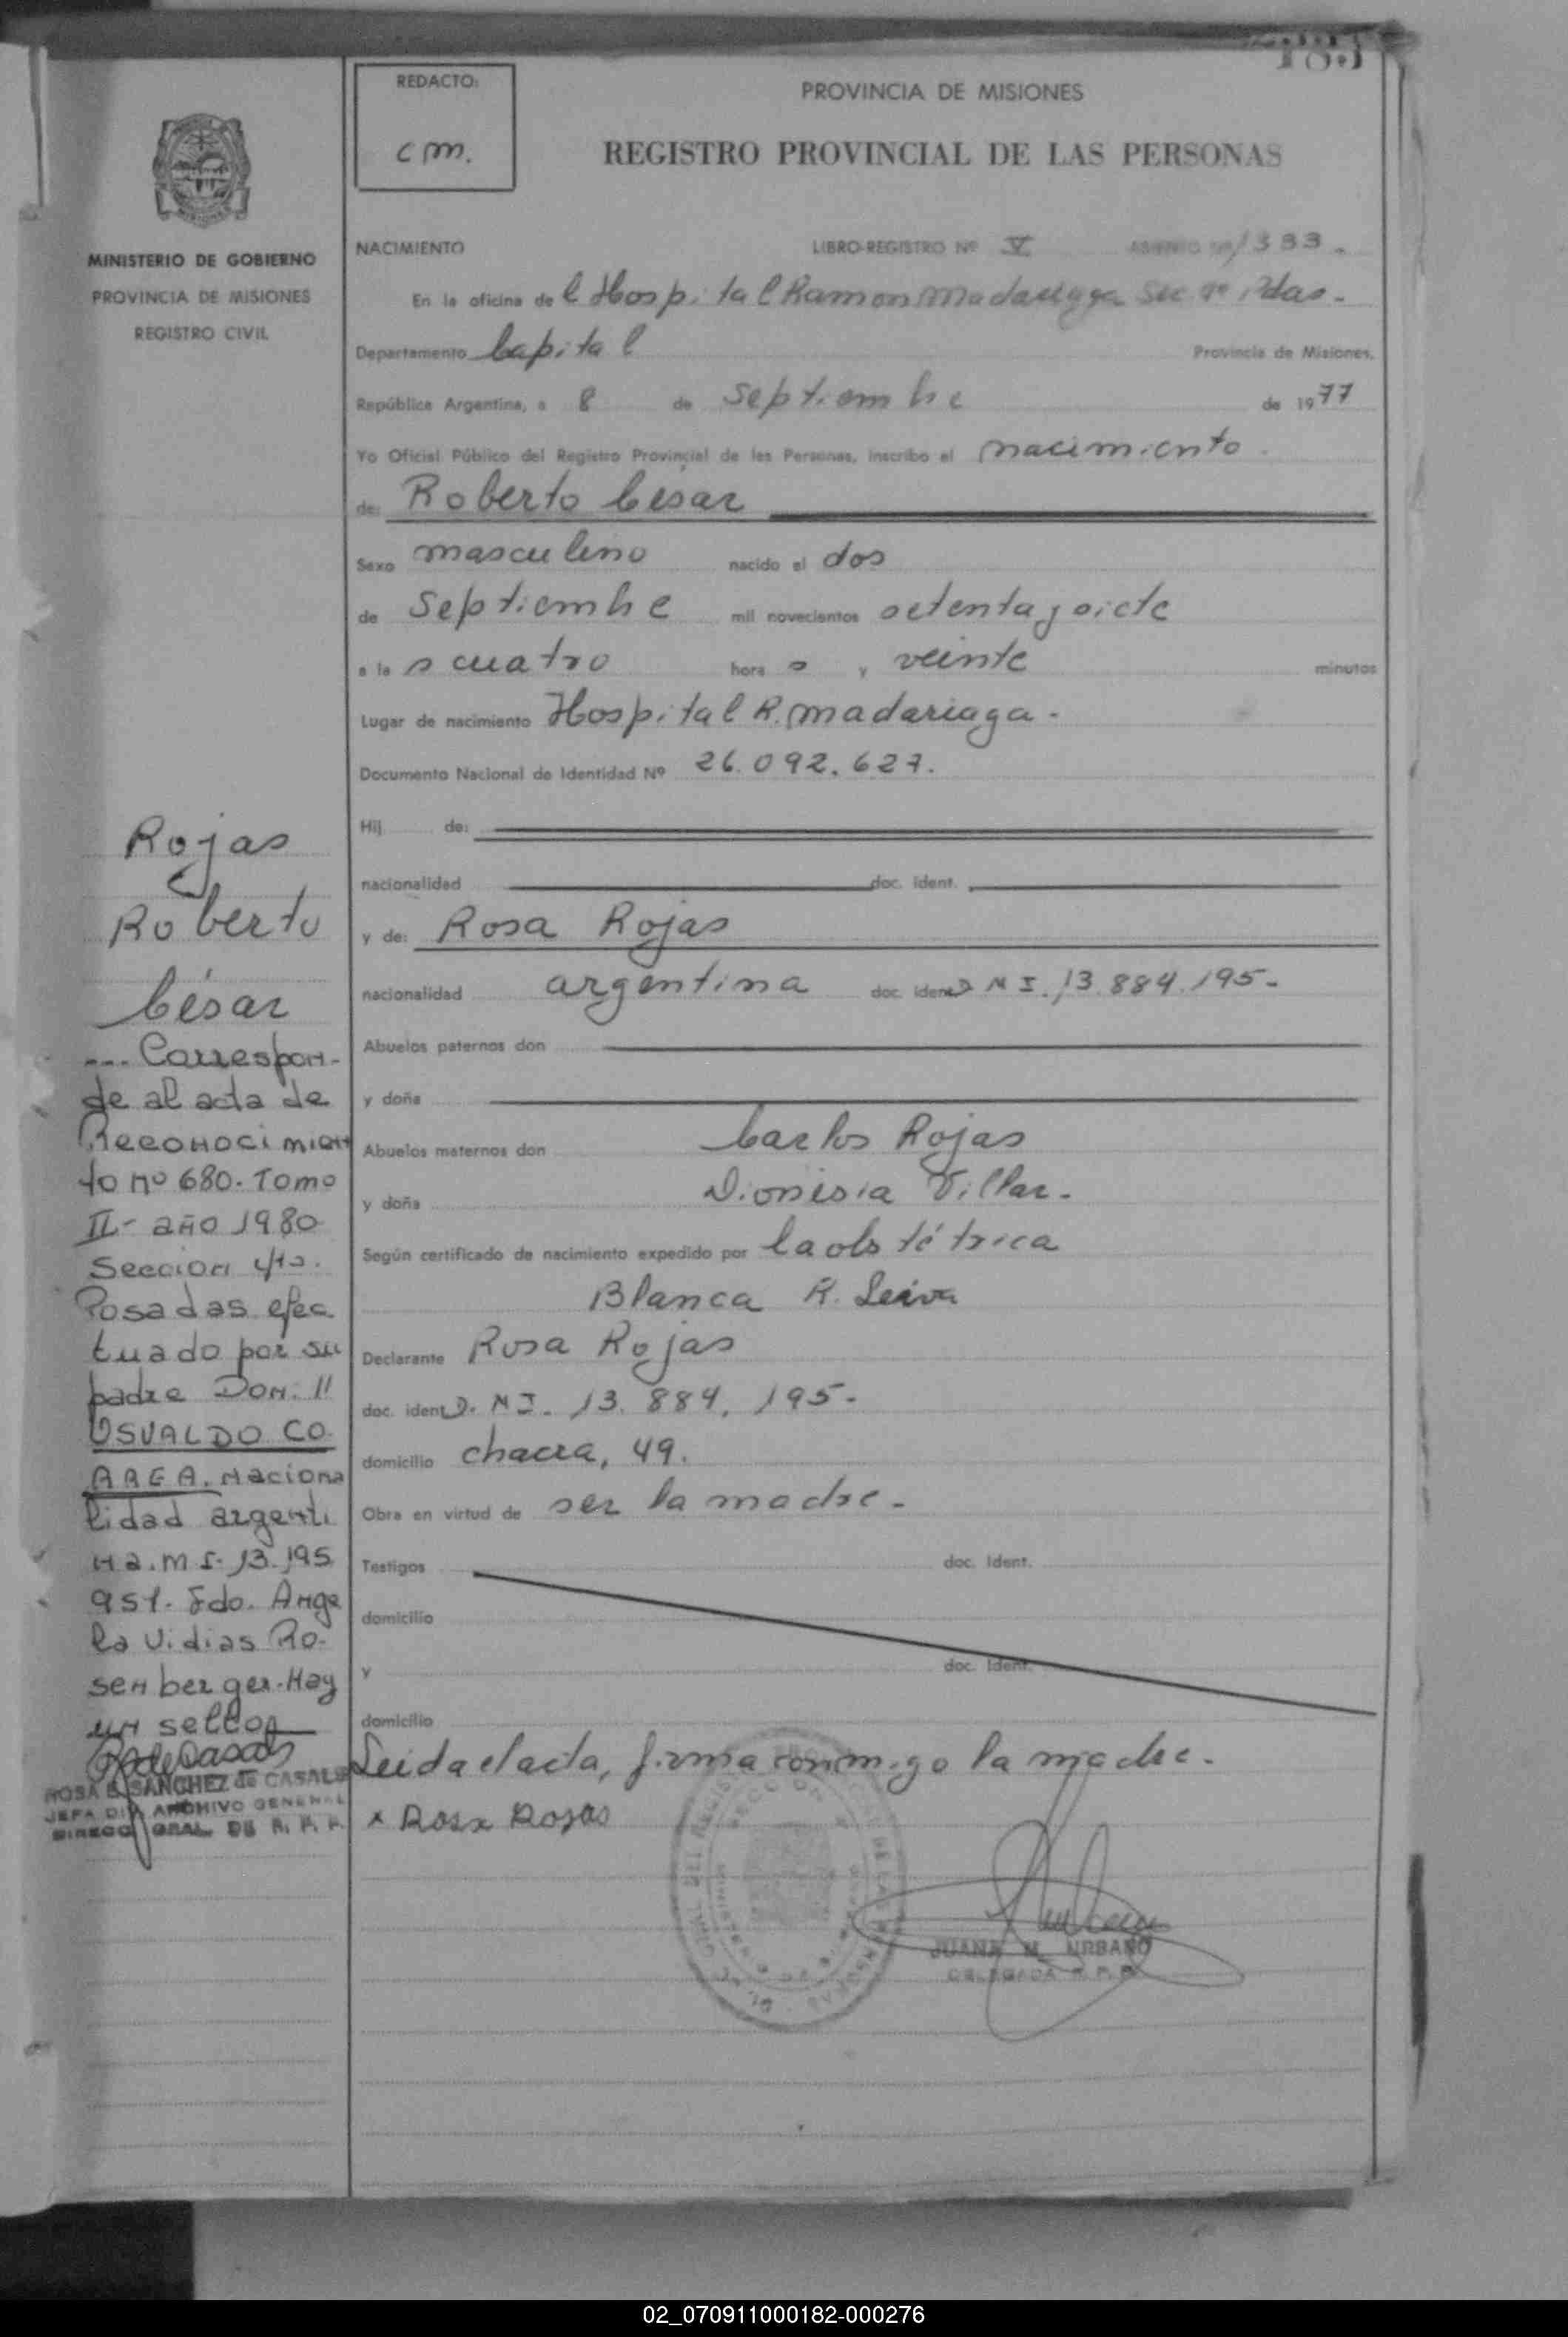 REDACTO:
cm.
PROVINCIA DE MISIONES
REGISTRO PROVINCIAL DE LAS PERSONAS
MINISTERIO DE GOBIERNO
PROVINCIA DE MISIONES
REGISTRO CIVIL
NACIMIENTO LIBRO-REGISTRO Nº V ASIENTO Nº 1333.
En la oficina del Hospital Ramon Madariaga Sec Pdas.
Departamento Capital Provincia de Misiones.
República Argentina, a 8 de Septiembre de 1977
Yo Oficial Público del Registro Provincial de las Personas, inscribo el nacimiento.
de: Roberto César
Sexo masculino nacido el dos
de Septiembre mil novecientos setenta y siete
a las cuatro horas y veinte minutos
Lugar de nacimiento Hospital R. Madariaga.
Documento Nacional de Identidad Nº 26.092.627.
Hij de:
nacionalidad doc. ident.
y de: Rosa Rojas
nacionalidad argentina doc. ident D N I. 13.884.195.
Abuelos paternos don
y doña
Abuelos maternos don Carlos Rojas
y doña Dionisia Villar.
Según certificado de nacimiento expedido por la obstétrica
Blanca R. Leiva
Declarante Rosa Rojas
doc. ident D. N I. 13. 884. 195.
domicilio chacra, 49.
Obra en virtud de ser la madre.
Testigos doc. Ident.
domicilio
y doc. Ident.
domicilio
Leida el acta, firma conmigo la madre.
x Rosa Rojas
JUANA M. URBANO
DELEGADA R. P. P.
Rojas
Roberto
César
--- Correspon-
de al acta de
Reconocimien
to nº 680. Tomo
II- año 1980
Seccion 4ta.
Posadas efec
tuado por su
padre Don: "
OSVALDO CO
RREA. Naciona
lidad argenti
na. M I. 13.195
951. Fdo. Ange
la Vidias Ro-
senberger. Hay
un sello
ROSA B. SANCHEZ de CASALS
JEFA DIV. ARCHIVO GENERAL
DIRECC. GRAL. DE R. P. P.
02_070911000182-000276